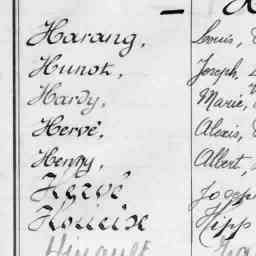 Harang, Louis,
Hunot, Joseph,
Hardy, Marie,
Hervé, Alexis,
Henry, Albert,
Hervé Joseph
Houeix Hipp
Hinault